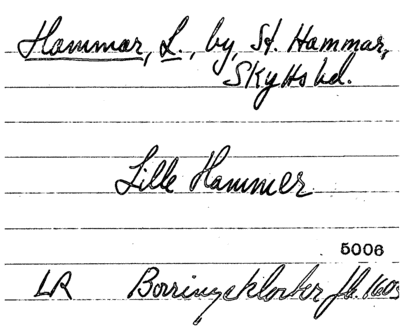 Hammar, L., by, St. Hammar,
Skytts hd.
Lille Hammer
5006
LR Börringekloster jb. 1603